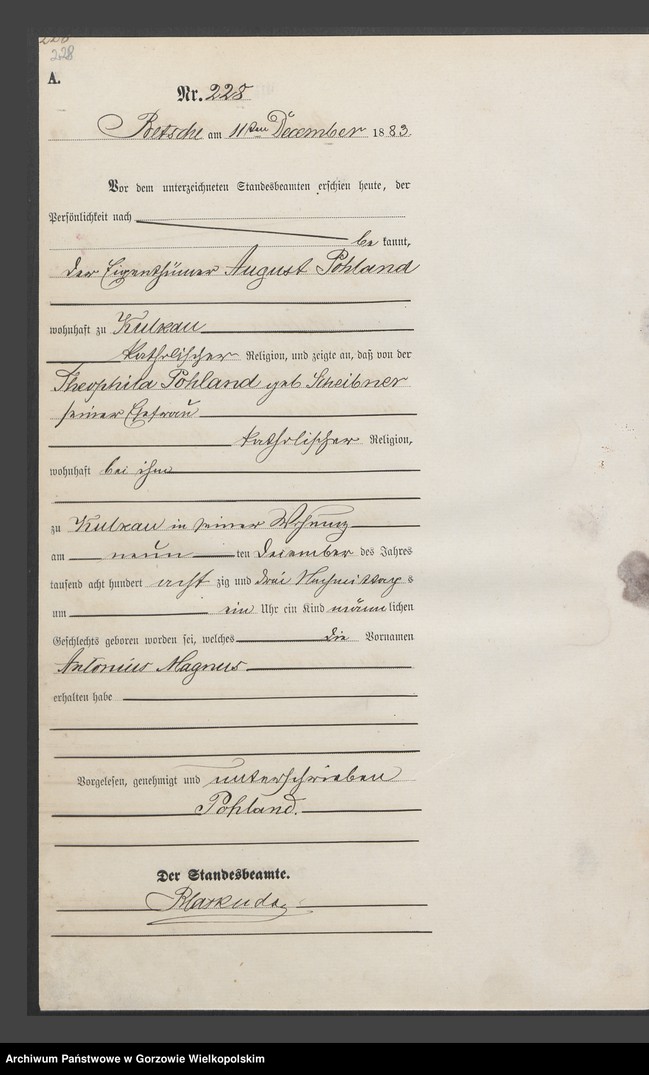 228
228
A.
Nr. 228
Betsche am 11ten December 1883.
Vor dem unterzeichneten Standesbeamten erschien heute, der
Persönlichkeit nach
be kannt,
der Eigenthümer August Pohland
wohnhaft zu Kulkau
katholischer Religion, und zeigte an, daß von der
Theophila Pohland geb Scheibner
seiner Ehefrau
katholischer Religion,
wohnhaft bei ihm
zu Kulkau in seiner Wohnung
am neun ten December des Jahres
tausend acht hundert acht zig und drei Nachmittag s
um ein Uhr ein Kind männ lichen
Geschlechts geboren worden sei, welches die Vornamen
Antonius Magnus
erhalten habe
Vorgelesen, genehmigt und unterschrieben
Pohland.
Der Standesbeamte.
Archiwum Państwowe w Gorzowie Wielkopolskim